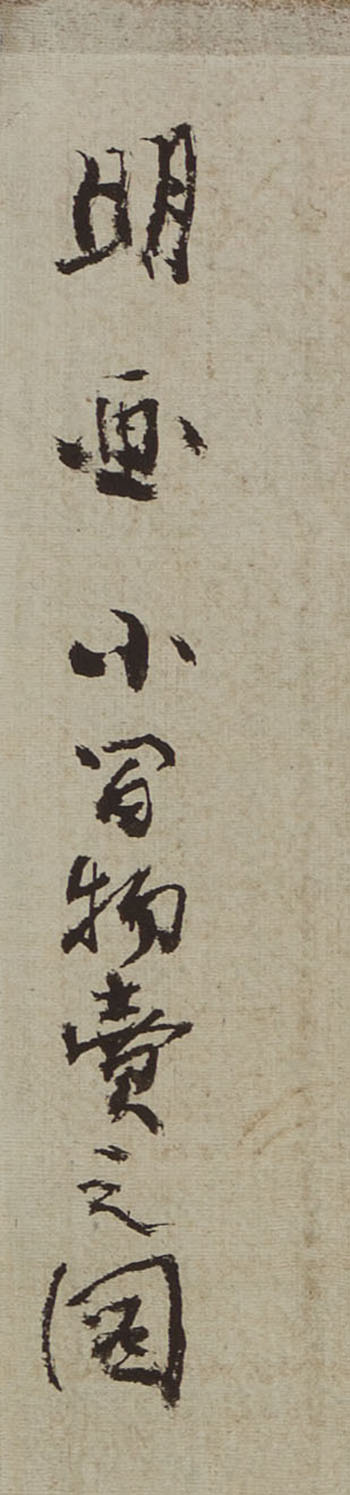 明画小間物賣之圖